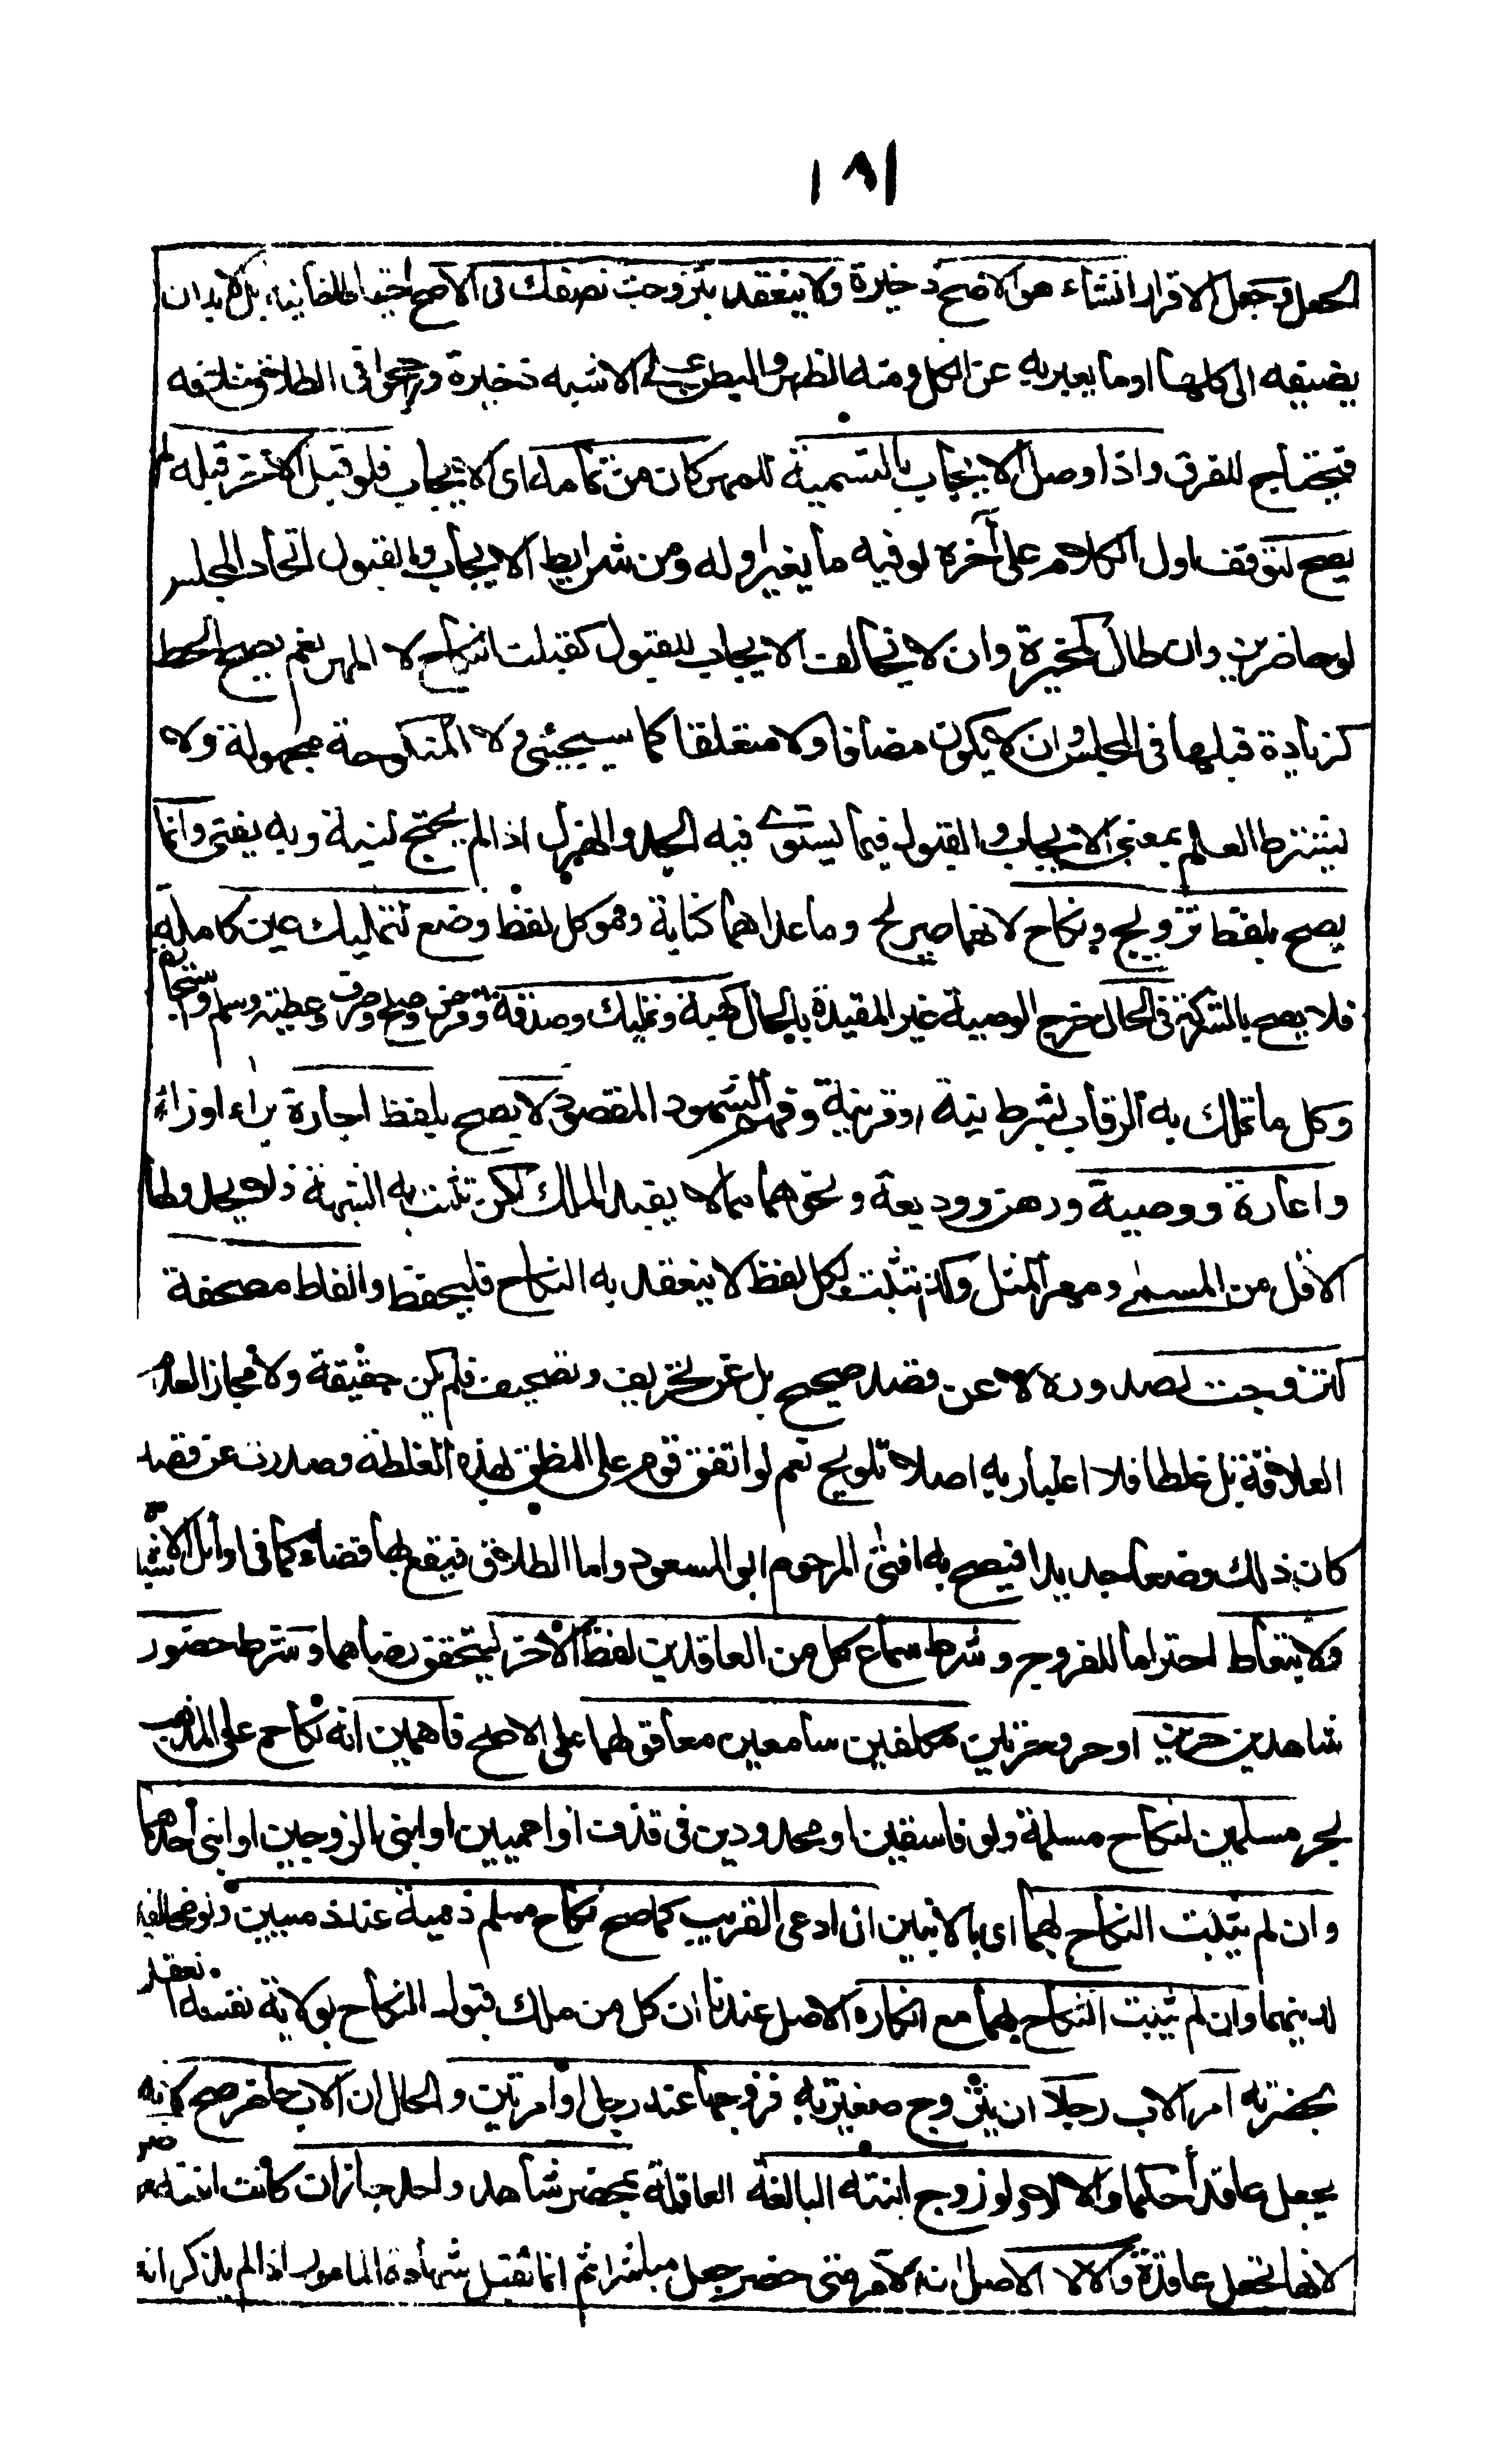 ١٨١
الجعل وجعل الاقرار انشاء هو الاصح ذخيرة ولا ينعقد بتزوجت نصفك فى الاصح احتياطا خانية بل لا بد ان
يضيفه الى كلها او ما يعبر به عن الكل ومنه الظهر والبطن على الاشبه ذخيرة ورجحوا فى الطلاق خلافه
فيحتاج للفرق واذا وصل الايجاب بالتسمية للمهر كان من تمامه اى الايجاب فلو قبل الآخر قبله لم
يصح لتوقف اول الكلام على آخره لو فيه ما يغير اوله ومن شرايط الايجاب والقبول اتحاد المجلس
لو حاضرين وان طال كمخيرة وان لا يخالف الايجاب للقبول كقبلت النكاح لا المهر نعم يصح الحط
كزيادة قبلها فى المجلس وان لا يكون مضافا ولا متعلقا كما سيجيئ ولا المنكوحة مجهولة ولا
يشترط العلم بمعنى الايجاب والقبول فيما يستوى فيه الجد والهزل اذا لم يحتج لنية وبه يفتى وانما
يصح بلفظ تزويج ونكاح لانهما صريح وما عداهما كناية وهو كل لفظ وضع لتمليك عين كاملة
فلا يصح بالشركة فى الحال خرج الوصية غير المقيدة بالحال كهبة وتمليك وصدقة وقرض وصلح وصرف وعطية وسلم واستيجار
وكل ما تملك به الرقاب بشرط نية او قرينة وفهم الشهود المقصود لا يصح بلفظ اجارة براء او زاء
واعارة ووصية ورهن ووديعة ونحوهما مما لا يقبل الملك لكن تثبت به الشبهة فلا يحد ولها
الاقل من المسمى ومهر المثل وكذا تثبت بكل لفظ لا ينعقد به النكاح فليحفظ والفاظ مصحفة
كتجوزت لصدوره لا عن قصد صحيح بل عن تحريف وتصحيف فلم يكن حقيقة ولا مجازا لعدم
العلاقة بل غلطا فلا اعتبار به اصلا تلويح نعم لو اتفق قوم على النطق بهذه الغلطة وصدرت عن قصد
كان ذلك وضعا جديدا فيصح به افتى المرحوم ابو السعود واما الطلاق فيقع بها قضاء كما فى اوائل الاشباه
ولا بتعاط احتراما للفروج وشرط سماع كل من العاقدين لفظ الآخر ليتحقق رضاهما وشرط حضور
شاهدين حرين او حر وحرتين مكلفين سامعين معا قولهما على الاصح فاهمين انه نكاح على المذهب
بحر مسلمين لنكاح مسلمة ولو فاسقين او محدودين فى قذف او اعميين او ابنى الزوجين او ابنى احدهما
وان لم يثبت النكاح بهما اى بالابنين ان ادعى القريب كما صح نكاح مسلم ذمية عند ذميين ولو مخالفين
لدينهما وان لم يثبت النكاح بهما مع انكاره الاصل عندنا ان كل من ملك قبول النكاح بولاية نفسه انعقد
بحضرته امر الاب رجلا ان يزوج صغيرته فزوجها عند رجل او امرتين والحال ان الاب حاضر صح لانه
يجعل عاقدا حكما والا لا ولو زوج ابنته البالغة العاقلة بمحضر شاهد واحد جاز ان كانت ابنته حاضرة
لانها تجعل عاقدة والا لا الاصل ان الآمر متى حضر جعل مباشرا ثم انما تقبل شهادة المامور اذا لم يذكر انه